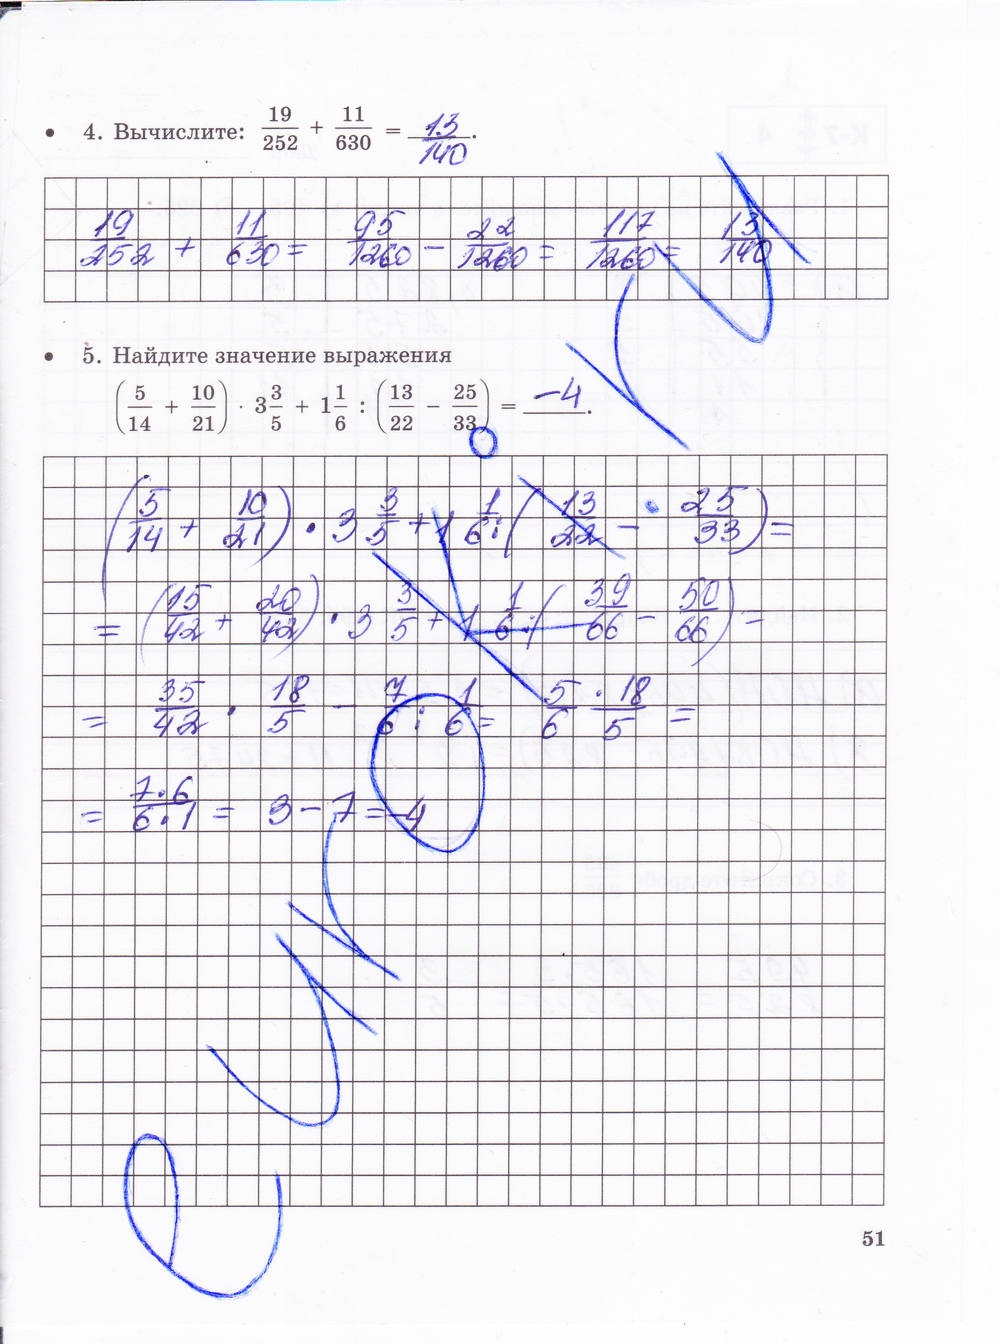 • 4. Вычислите: 19/252 + 11/630 = 13/140.
19/252 + 11/630 = 95/1260 − 22/1260 = 117/1260 = 13/140
• 5. Найдите значение выражения
(5/14 + 10/21) · 3 3/5 + 1 1/6 : (13/22 − 25/33) = −4.
(5/14 + 10/21) · 3 3/5 + 1 1/6 : (13/22 − 25/33) =
= (15/42 + 20/42) · 3 3/5 + 1 1/6 : (39/66 − 50/66) =
= 35/42 · 18/5 − 7/6 : 1/6 = 5/6 · 18/5 =
= 7·6/6·1 = 3 − 7 = −4
51